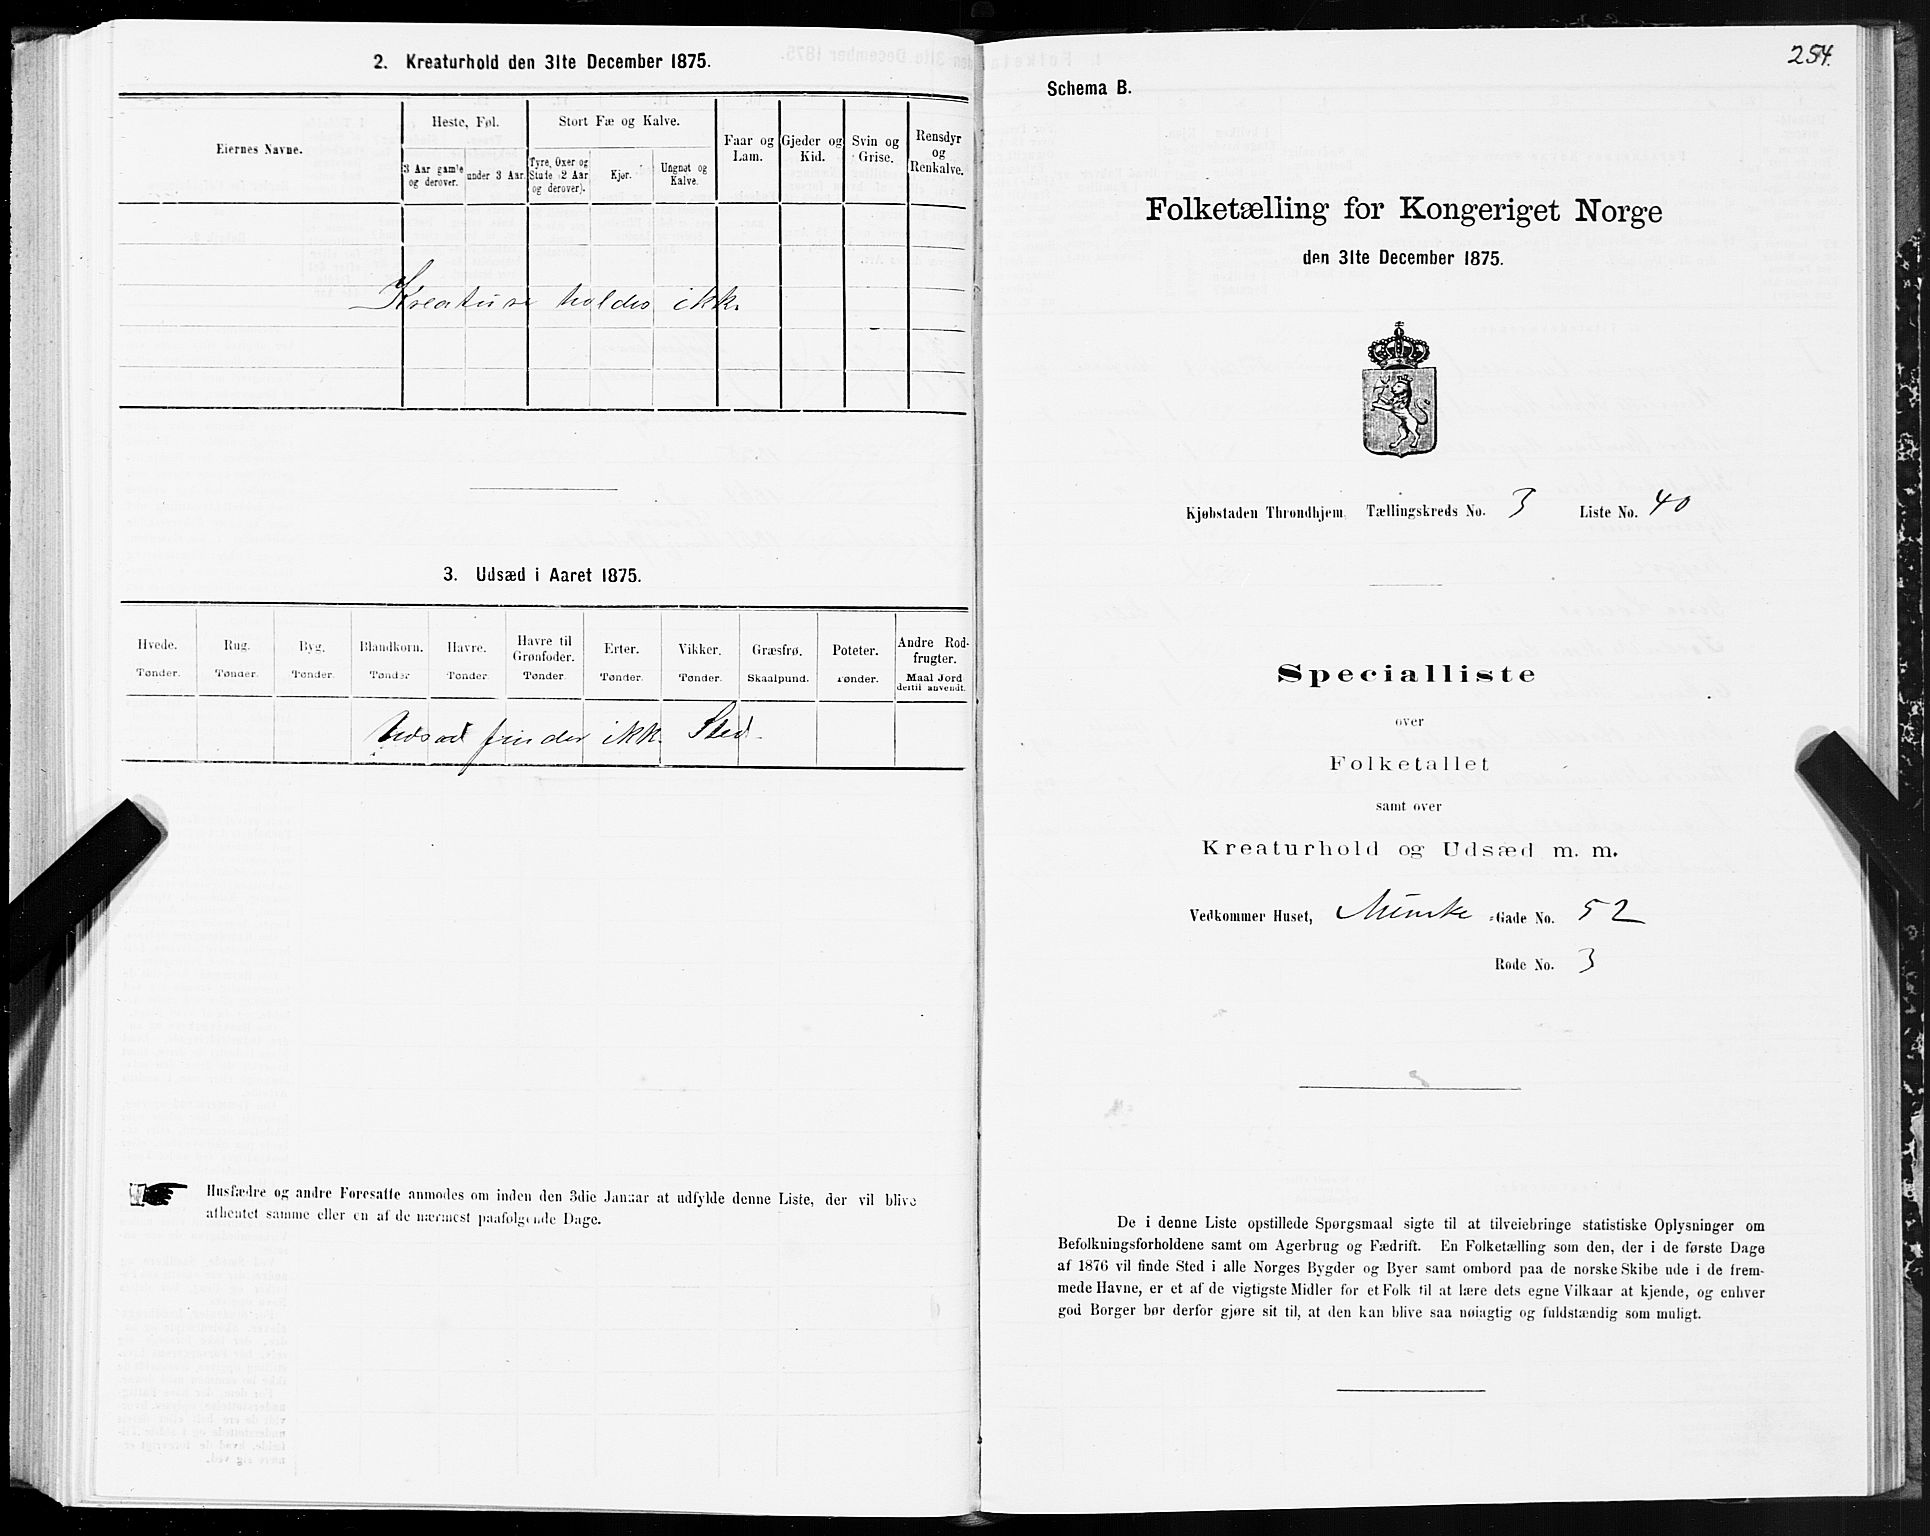 2. Kreaturhold den 31te December 1875.
Eiernes Navne.
Heste, Føl.
3 Aar gamle og derover.
under 3 Aar.
Stort Fæ og Kalve.
Tyre, Oxer og Stute (2 Aar og derover).
Kjør.
Ungnøt og Kalve.
Faar og Lam.
Gjeder og Kid.
Svin og Grise.
Rensdyr og Renkalve.
Kreature holdes ikke
3. Udsæd i Aaret 1875.
Hvede. Rug. Byg. Blandkorn. Havre. Havre til Grønfoder. Erter. Vikker. Græsfrø. Poteter. Andre Rodfrugter.
Tønder. Tønder. Tønder. Tønder Tønder. Tønder. Tønder. Tønder. Skaalpund. Tønder. Maal Jord dertil anvendt.
Udsæd finder ikke Sted.
Husfædre og andre Foresatte anmodes om inden den 3die Januar at udfylde denne Liste, der vil blive
afhentet samme eller en af de nærmest paafølgende Dage.
254.
Schema B.
Folketælling for Kongeriget Norge
den 31te December 1875.
Kjøbstaden Throndhjem. Tællingskreds No. 3 Liste No. 40
Specialliste
over
Folketallet
samt over
Kreaturhold og Udsæd m. m.
Vedkommer Huset, Munke -Gade No. 52
Rode No. 3
De i denne Liste opstillede Spørgsmaal sigte til at tilveiebringe statistiske Oplysninger om
Befolkningsforholdene samt om Agerbrug og Fædrift. En Folketælling som den, der i de første Dage
af 1876 vil finde Sted i alle Norges Bygder og Byer samt ombord paa de norske Skibe ude i de frem-
mede Havne, er et af de vigtigste Midler for et Folk til at lære dets egne Vilkaar at kjende, og enhver
god Borger bør derfor gjøre sit til, at den kan blive saa nøiagtig og fuldstændig som muligt.